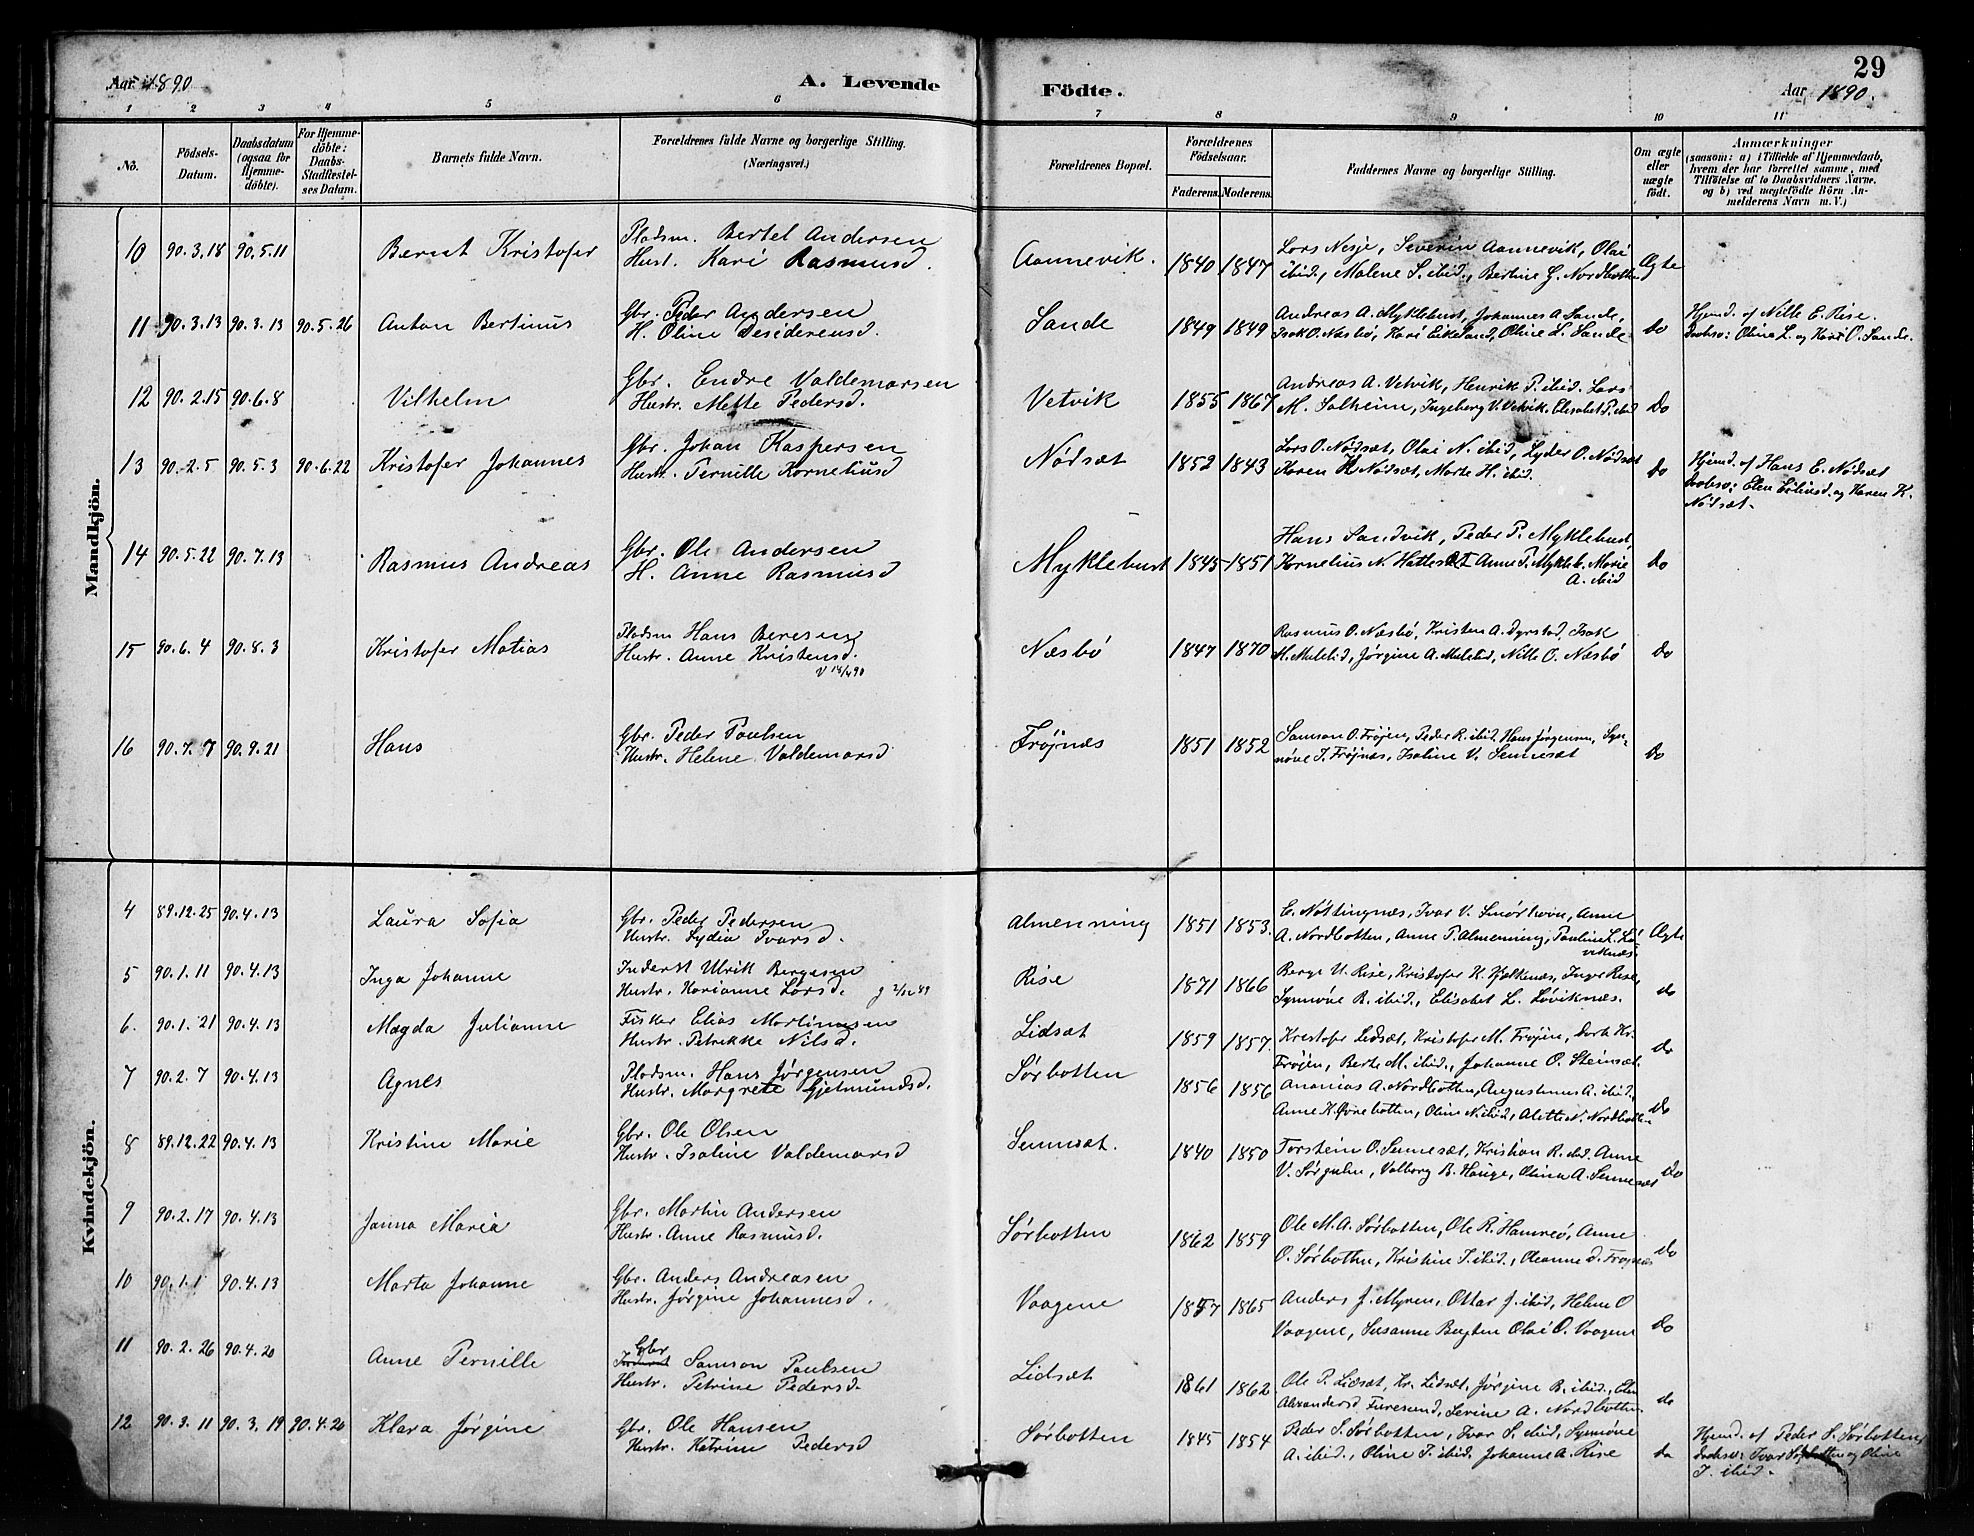 29
Aar 1890
A. Levende
Födte.
Aar 1890.
1 2 3 4 5 6 7 8 9 10 11
No.
Födsels-Datum.
Daabsdatum (ogsaa for Hjemmedöbte).
For Hjemmedöbte: Daabs-Stadfæstelses Datum.
Barnets fulde Navn.
Forældrenes fulde Navne og borgerlige Stilling.
(Næringsvei.)
Forældrenes Bopæl.
Forældrenes Födselsaar.
Faderens. Moderens.
Faddernes Navne og borgerlige Stilling.
Om ægte eller uægte födt.
Anmærkninger
(saasom: a) i Tilfælde af Hjemmedaab,
hvem der har forrettet samme, med
Tilföielse af to Daabsvidners Navne,
og b) ved uægtefödte Börn Anmelderens Navn m.V.)
Mandkjön.
10 90.3.18 90.5.11 Bernt Kristofer
Pladsm. Bertel Andersen
Hust. Kari Rasmusd.
Aannevik. 1840 1847
Lars Nesje, Severin Aannevik, Olai
ibid, Malene S. ibid., Bertine G. Nordbotten
Ægte
11 90.3.13 90.3.13 90.5.26 Anton Bertinus
Gbr. Peder Andersen
H. Oline Desiderensd.
Sande 1849 1849
Andreas A. Myklebust, Johannes A. Sande,
Isak O. Næsbø, Kari Eikeland, Oline L. Sande
do
Hjemd. af Nille E. Rise.
Daabsv: Oline L. og Kari O. Sande.
12 90.2.15 90.6.8 Vilhelm
Gbr. Endre Valdemarsen
Hustr. Mette Pedersd.
Vetvik 1855 1867
Andreas A. Vetvik, Henrik P. ibid. Lars
M. Solheim, Ingeborg V. Vetvik, Elisabet P. ibid
do
13 90.2.5 90.5.3 90.6.22 Kristofer Johannes
Gbr. Johan Kaspersen
Hustr. Pernille Korneliusd
Nødsæt 1852 1843
Lars O. Nødsæt, Olai N. ibid, Lyder O. Nødsæt
Karen K. Nødsæt, Marte H. ibid.
do
Hjemd. af Hans E. Nødsæt
Daabsv: Elen and Karen K.
Nødsæt.
14 90.5.22 90.7.13 Rasmus Andreas
Gbr. Ole Andersen
H. Anne Rasmusd
Myklebust 1845 1851
Hans Sandvik, Peder P. Myklebust,
Kornelius N. Anne P. Mykleb. Marie
A. ibid
do
15 90.6.4 90.8.3 Kristofer Matias
Pladsm Hans
Hustr. Anne Kristensd.
Næsbø 1847 1870
Rasmus O. Næsbø, Kristen A. Dyrstad, Isak
H. Mulelid, Jørgine A. Mulelid, Nille O. Næsbø
do
16 90.7.7 90.9.21 Hans
Gbr. Peder Paulsen
Hustr. Helene Valdemarsd
Frøjnæs 1851 1852
Samson O. Frøjen, Peder R. ibid. Hans Jørgensen, Syn-
nøve J. Frøjnæs, Isaline V. Sennesæt
do
Kvindekjön.
4 89.12.25 90.4.13 Laura Sofia
Gbr. Peder Pedersen
Hustr. Lydia Ivarsd.
Almenning 1851 1853.
E. Nøttingnæs, Ivar V. Smørhavn, Anne
A. Nordbotten, Anne P. Almenning, Pauline L. Lø-
viknæs.
Ægte
5 90.1.11 90.4.13 Inga Johanne
Inderst Ulrik Bergesen
Hustr. Marianne Larsd.
Rise 1871 1866
Berge U. Rise, Kristofer K. Hjelknæs, Inger Rise,
Synnøve B. ibid., Elisabet L. Løviknæs.
do
6. 90.1.21 90.4.13 Magda Julianne
Fisker Elias Martinusen
Hustr. Petrikke Nilsd.
Lidsæt 1859 1857.
Kristofer Lidsæt, Kristofer M. Frøjen, Dorte Kr.
Frøjen, Berte M. ibid., Johanne O. Steinsæt.
do
7 90.2.7 90.4.13 Agnes
Pladsm. Hans Jørgensen
Hustr. Margrete Gjelmundsd.
Sørbotten 1856 1856
Ananias A. Nordbotten, Augustinus A. ibid.,
Anne K. Øvrebotten, Oline N. ibid, Alette N. Nordbotten
do
8 89.12.22 90.4.13 Kristine Marie
Gbr. Ole Olsen
Hustr. Isaline Valdemarsd
Sennesæt. 1840 1850
Torstein O. Sennesæt, Kristian R. ibid. Anne
V. Sørgulen, Valborg B. Hauge, Olina A. Sennesæt
do
9 90.2.17 90.4.13 Janna Maria
Gbr. Martin Andersen
Hustr. Anne Rasmusd.
Sørbotten 1862 1859
Ole M. A. Sørbotten, Ole R. Hamreø, Anne
O. Sørbotten, Kristine T. ibid., Oleanne D. Frøjnæs
do
10 90.1.1 90.4.13 Marta Johanne
Gbr. Anders Andreasen
Hustr. Jørgine Johannesd.
Vaagene 1857 1865
Anders J. Myren, Ottar J. ibid, Helene O
Vaagene, Susanne Olai O. Vaagene
do
11 90.2.26 90.4.20 Anne Pernille
Gbr
Inderst Samson Paulsen
Hustr. Petrine Pedersd.
Lidsæt 1861 1862
Ole P. Lidsæt, Kr. Lidsæt, Jørgine B. ibid., Elen
Alexandersd Furesund, Serine A. Nordbotten
do
12 90.3.11 90.3.19 90.4.20 Klara Jørgine
Gbr. Ole Hansen
Hustr. Katrine Pedersd
Sørbotten 1845 1854
Peder S. Sørbotten, Ivar S. ibid, Synnøve
A. ibid., Oline T. ibid, Johanne A. Rise
do
Hjemd. af Peder S. Sørbotten,
Daabsv: Ivar Sørbotten og Oline
T. ibid.